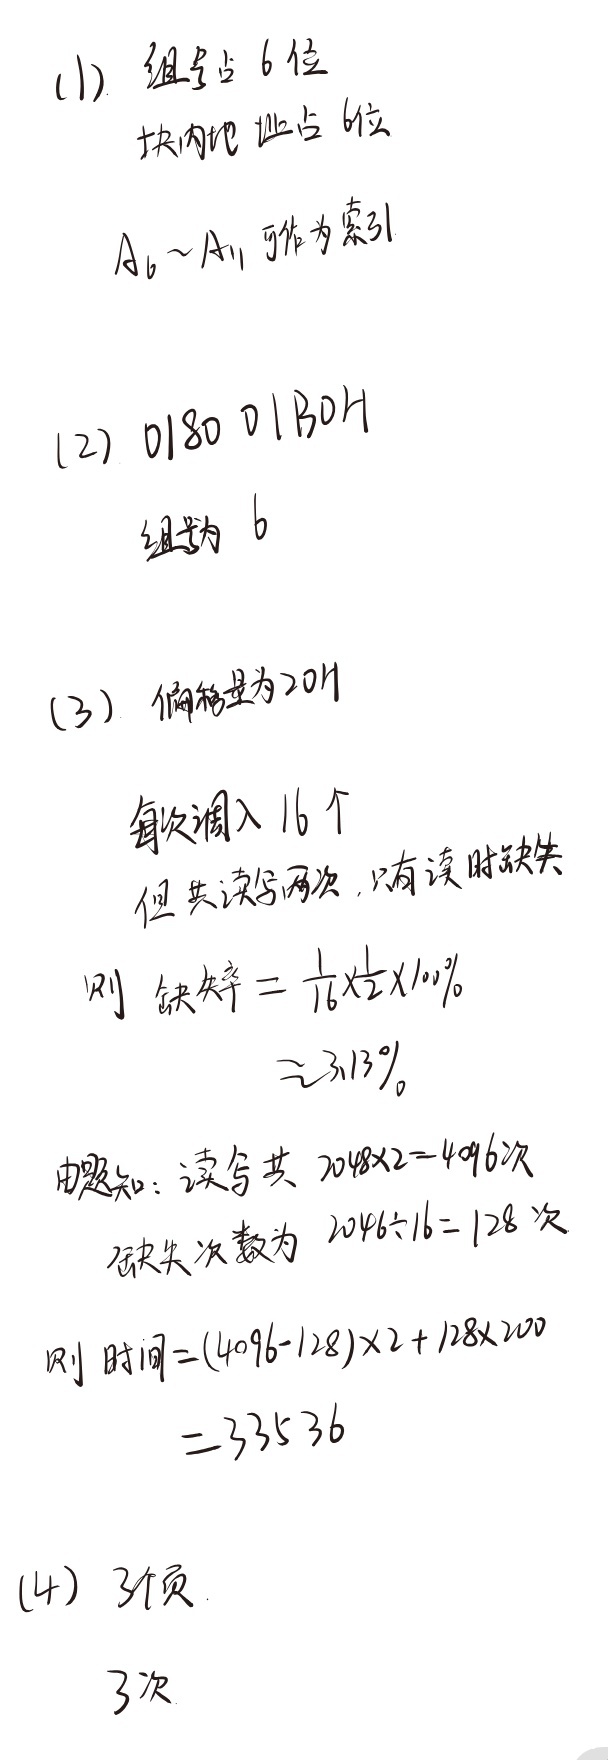 (1) 组号占 6位
块内地址占 6位
A6～A11 可作为索引
(2) 0180 01B0H
组号为 6
(3) 偏移量为20H
每次调入 16个
但共读写两次,只有读时缺失
则 缺失率 = 1/16×1/2×100%
≈3.13%
由题知: 读写共 2048×2=4096次
缺失次数为 2046÷16=128次
则 时间=(4096-128)×2+128×200
=33536
(4) 3个页.
3次